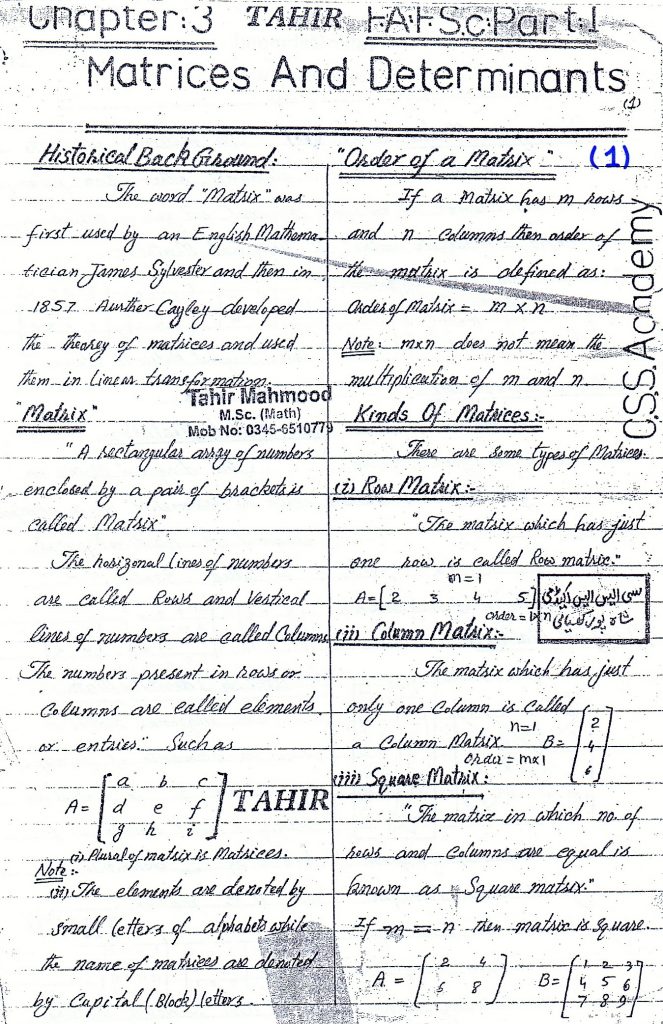 Chapter:3 TAHIR F.A/F.Sc:Part:1
Matrices And Determinants
(1)
Historical Back Ground:
The word "Matrix" was
first used by an English Mathema-
tician James Sylvester and then in
1857 Aurther Cayley developed
the theorey of matrices and used
them in linear transformation.
Tahir Mahmood
M.Sc. (Math)
Mob No: 0345-6510779
"Matrix"
"A rectangular array of numbers
enclosed by a pair of brackets is
called Matrix"
The horizonal lines of numbers
are called Rows and Vestical
lines of numbers are called Columns
The numbers present in rows or
Columns are called elements
or entries." Such as
A= [ a b c
d e f
g h i ] TAHIR
Note:-
(i) Plural of matrix is Matrices.
(ii) The elements are denoted by
small letters of alphabets while
the name of matrices are denoted
by Capital (Block) letters.
"Order of a Matrix" (1)
If a Matrix has m rows
and n Columns then order of
the matrix is defined as:
Order of Matrix = m × n
Note: m×n does not mean the
multiplication of m and n
Kinds Of Matrices:-
There are some types of Matrices.
(i) Row Matrix:-
"The matrix which has just
one row is called Row matrix."
m=1
A=[ 2 3 4 5]
order = 1×n
سی ایس ایس اکیڈمی
(ii) Column Matrix:-
The matrix which has just
only one Column is Called
a Column Matrix. n=1
B= [ 2
4
6 ]
Order = m×1
(iii) Square Matrix:
"The matrix in which no. of
rows and Columns are equal is
known as Square matrix."
If m = n then matrix is Square.
A = [ 2 4
6 8 ]
B= [ 1 2 3
4 5 6
7 8 9 ]
C.S.S. Academy